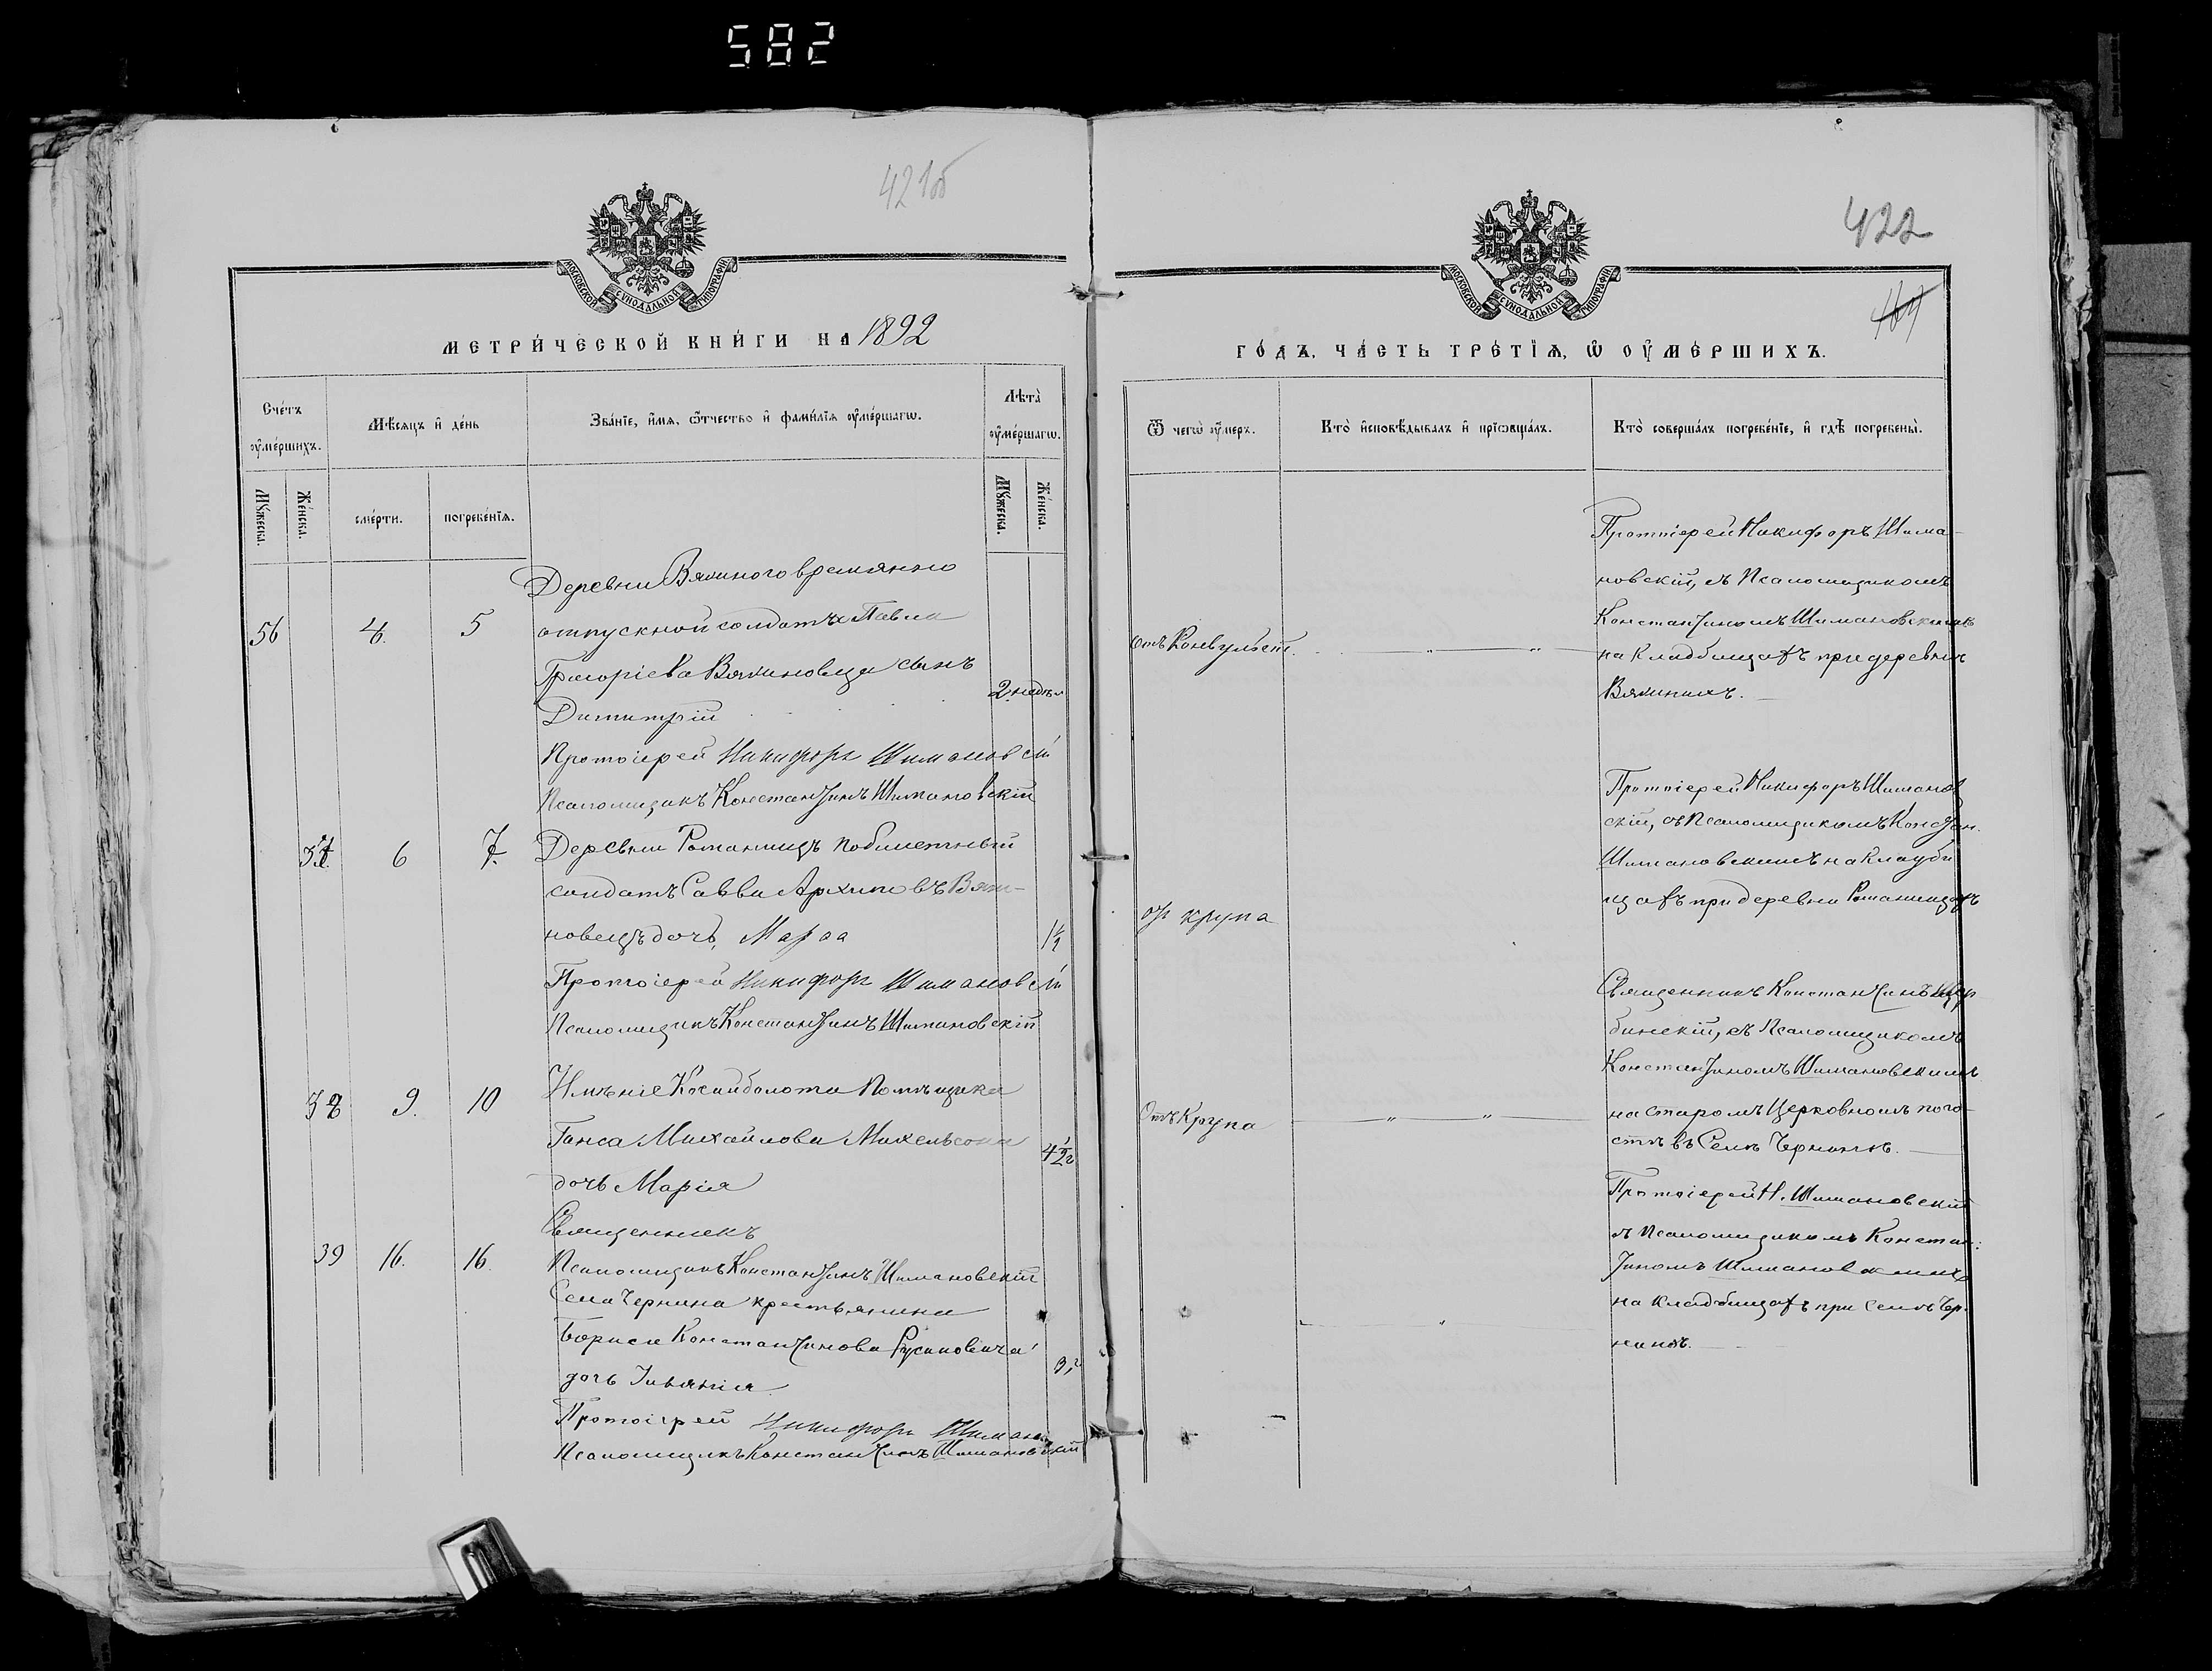 582
421об
МОСКОВСКОЙ СѴНОДАЛЬНОЙ ТИПОГРАФІИ
МЕТРИ́ЧЕСКОЙ КНИ́ГИ НА 1892
Сче́тъ оу҆ме́ршихъ.
Мѣ́сяцъ и҆ де́нь
Зва́нїе, и҆́мя, ѻ҆́тчество и҆ фами́лїя оу҆ме́ршагѡ.
Лѣта̀ оу҆ме́ршагѡ.
Мꙋ́жеска.
Же́нска.
сме́рти.
погребе́нїя.
Мꙋ́жеска.
Же́нска.
56
4.
5
Деревни Вяхиного времянно
отпускной солдатъ Павла
Григоріева Вяхиновца сынъ
2 недѣл
Димитрій
Протоіерей Никифоръ Шимановскій
Псаломщикъ Константинъ Шимановскій
37
6
7.
Деревни Романищъ побилетный
солдатъ Савва Архиповъ Вяхи-
новецъ дочь Марѳа
1½
Протоіерей Никифоръ Шимановскій
Псаломщикъ Константинъ Шимановскій
38
9.
10
Имѣніе Косинболота Помѣщика
Ганса Михайлова Михельсона
4½
дочь Марія
Священникъ
39
16.
16.
Псаломщикъ Константинъ Шимановскій
Села Чернина крестьянина
Бориса Константинова Русиновича
дочь
Протоіерей Никифоръ Шиман
Псаломщикъ Константинъ Шимановскій
422
МОСКОВСКОЙ СѴНОДАЛЬНОЙ ТИПОГРАФІИ
ГО́ДЪ, ЧА́СТЬ ТРЕ́ТЇѦ, Ѡ҆ ОУ҆МЕ́РШИХЪ.
Ѿ чегѡ̀ оу҆́меръ.
Кто̀ и҆сповѣ́дывалъ и҆ прїѡбща́лъ.
Кто̀ соверша́лъ погребе́нїе, и҆ гдѣ̀ погребены̀.
Протоіерей Никифоръ Шима-
новскій, съ Псаломщикомъ
Константиномъ Шимановскимъ
отъ Конвульсіи.
на кладбищахъ при деревни
Вяхинахъ.
Протоіерей Никифоръ Шиманов
скій, съ Псаломщикомъ Констан.
Шимановскимъ на кладби
щахъ при деревни Романищахъ
отъ крупа
Священникъ Константинъ Щер
бинскій, съ Псаломщикомъ
Константиномъ Шимановскимъ
Отъ Крупа
на старомъ Церковномъ пого-
стѣ въ Селѣ Чернинѣ.
Протоіерей Н. Шимановскій
съ Псаломщикомъ Констан:
тиномъ Шимановскимъ
на кладбищахъ при Селѣ Чер-
нинѣ.